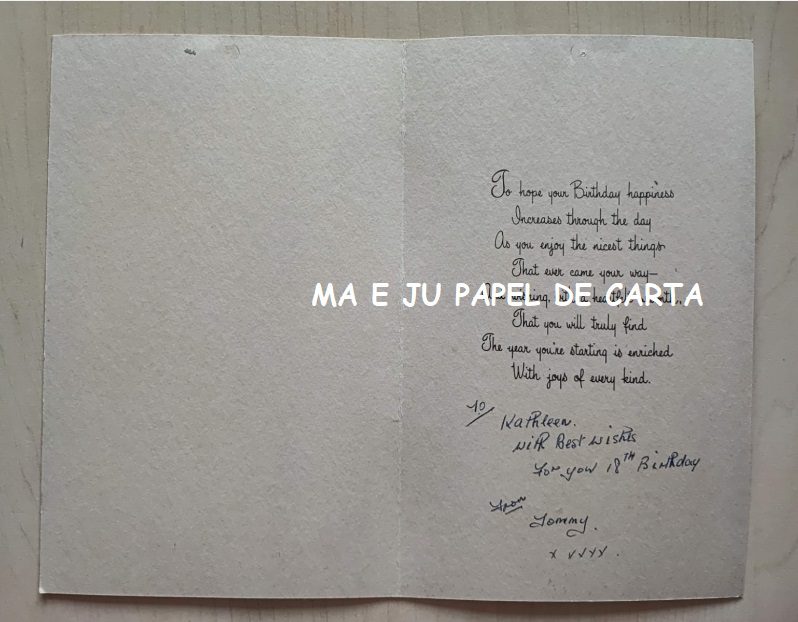 To hope your Birthday happiness
Increases through the day
As you enjoy the nicest things
That ever came your way—
MA E JU PAPEL DE CARTA
That you will truly find
The year you're starting is enriched
With joys of every kind.
To
Kathleen.
with Best wishes
For your 18TH Birthday
From
Tommy.
x xxxx.